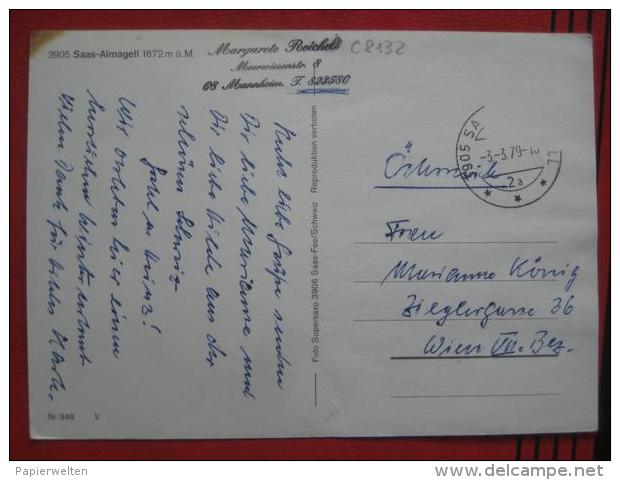 3905 Saas-Almagell 1672 m ü.M.
Margarete Reichelt
Meerwiesenstr. 8
68 Mannheim. T. 823580
C8132
Recht liebe Grüße senden
Dir liebe Marianne und
Dir liebe Hilde aus der
schönen Schweiz
Gretl u. Heinz!
Wir erleben hier einen
herrlichen Winterurlaub
Vielen Dank für Hildes Karte.
Nr. 948 V
Foto Supersaxo 3906 Saas-Fee/Schweiz Reproduktion verboten
3905 SA
-3.-3.79-18
2a
Österreich
Frau
Marianne König
Zieglergasse 26
Wien VII. Bez.
Papierwelten
delcampe.net